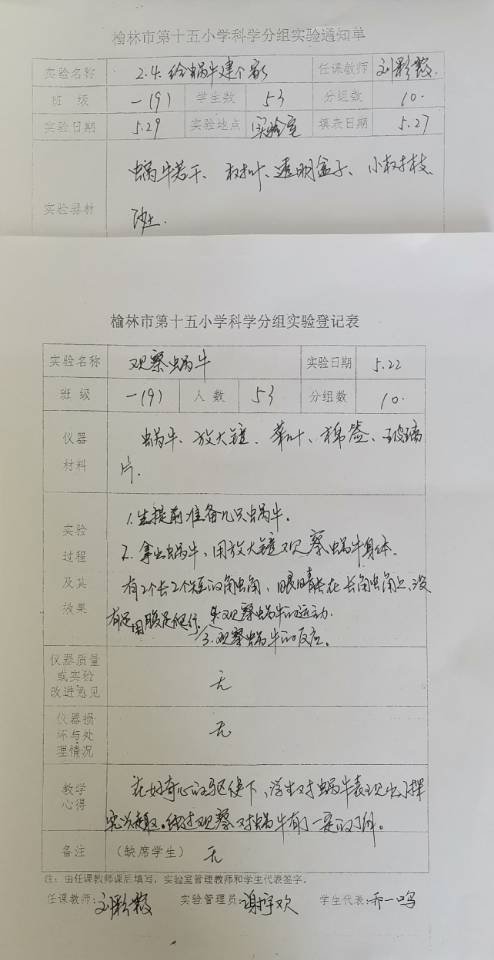 榆林市第十五小学科学分组实验通知单
实验名称 2.4.给蜗牛建个家 任课教师 刘彩毅
班级 一(9) 学生数 53 分组数 10.
实验日期 5.29 实验地点 实验室 填表日期 5.27
实验器材 蜗牛若干、树叶、透明盒子、小树枝
沙土.
榆林市第十五小学科学分组实验登记表
实验名称 观察蜗牛 实验日期 5.22
班级 一(9) 人数 53 分组数 10.
仪器 蜗牛、放大镜、菜叶、棉签、玻璃
材料 片.
1.生提前准备几只蜗牛.
实验
过程 2.拿出蜗牛,用放大镜观察蜗牛身体.
及其 有2个长2个短的触角,眼睛长在长触角上,没
效果 有足用腹足爬行. 观察蜗牛的运动.
3.观察蜗牛的反应.
仪器质量
或实验 无
改进意见
仪器损
坏与处 无
理情况
教学 在好奇心的驱使下,学生对蜗牛表现出了探
心得 究兴趣。通过观察对蜗牛有了一定的了解.
备注 (缺席学生) 无
注:由任课教师课后填写,实验室管理教师和学生代表签字。
任课教师:刘彩毅 实验管理员:谢宇欢 学生代表:乔一鸣